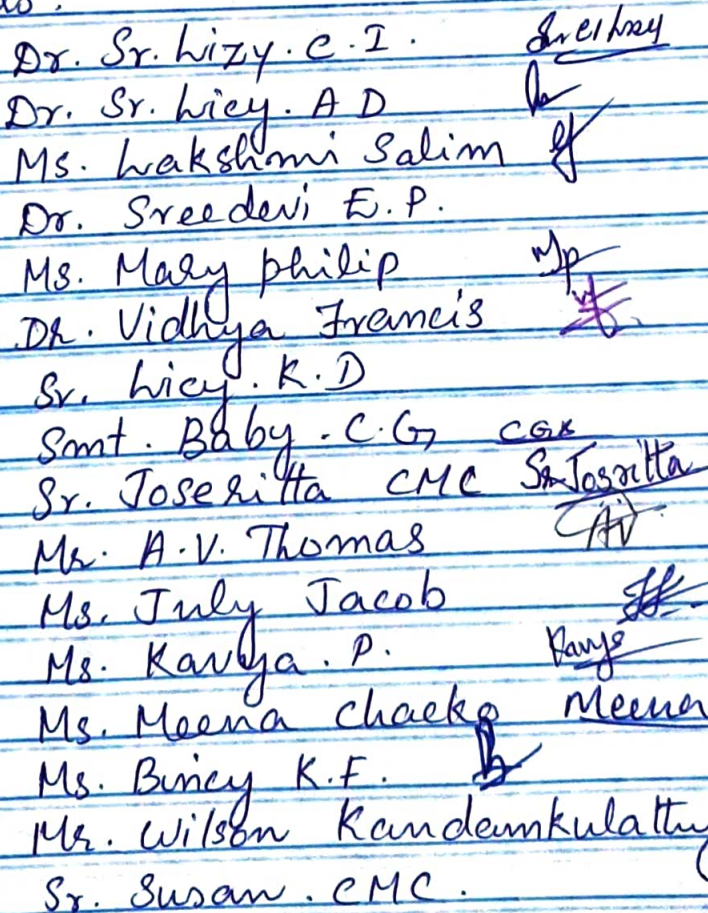 Dr. Sr. Lizy. C. I.
Dr. Sr. Licy. A D
Ms. Lakshmi Salim
Dr. Sreedevi E. P.
Ms. Mary philip Mp
Dr. Vidhya Francis
Sr. Licy. K. D
Smt. Baby. C. G, CGB
Sr. Joseritta CMC Sr. Josritta
Mr. A. V. Thomas AV
Ms. July Jacob
Ms. Kavya. P. Kavya
Ms. Meena Chacko Meena
Ms. Bincy K. F.
Mr. Wilson Kandamkulathy
Sr. Susan. CMC.